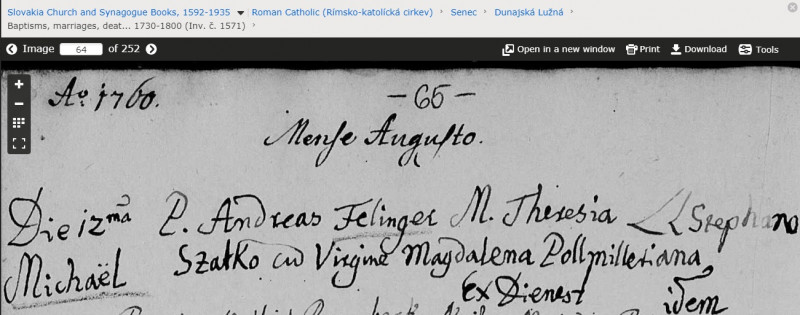 Slovakia Church and Synagogue Books, 1592-1935 Roman Catholic (Rímsko-katolícká cirkev) Senec Dunajská Lužná
Baptisms, marriages, deat... 1730-1800 (Inv. č. 1571)
Image 64 of 252 Open in a new window Print Download Tools
Ao. 1760. - 65 -
Mense Augusto.
Die 12ma P. Andreas Felinger M. Theresia LL Stephano
Michaël Szatko cu Virgine Magdalena Pollmilleriana
Ex Dienest idem